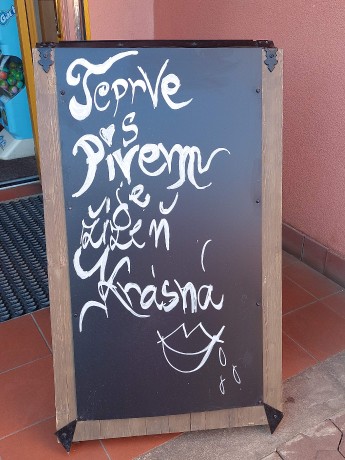 Teprve
s
Pivem
je
žízeň
Krásná